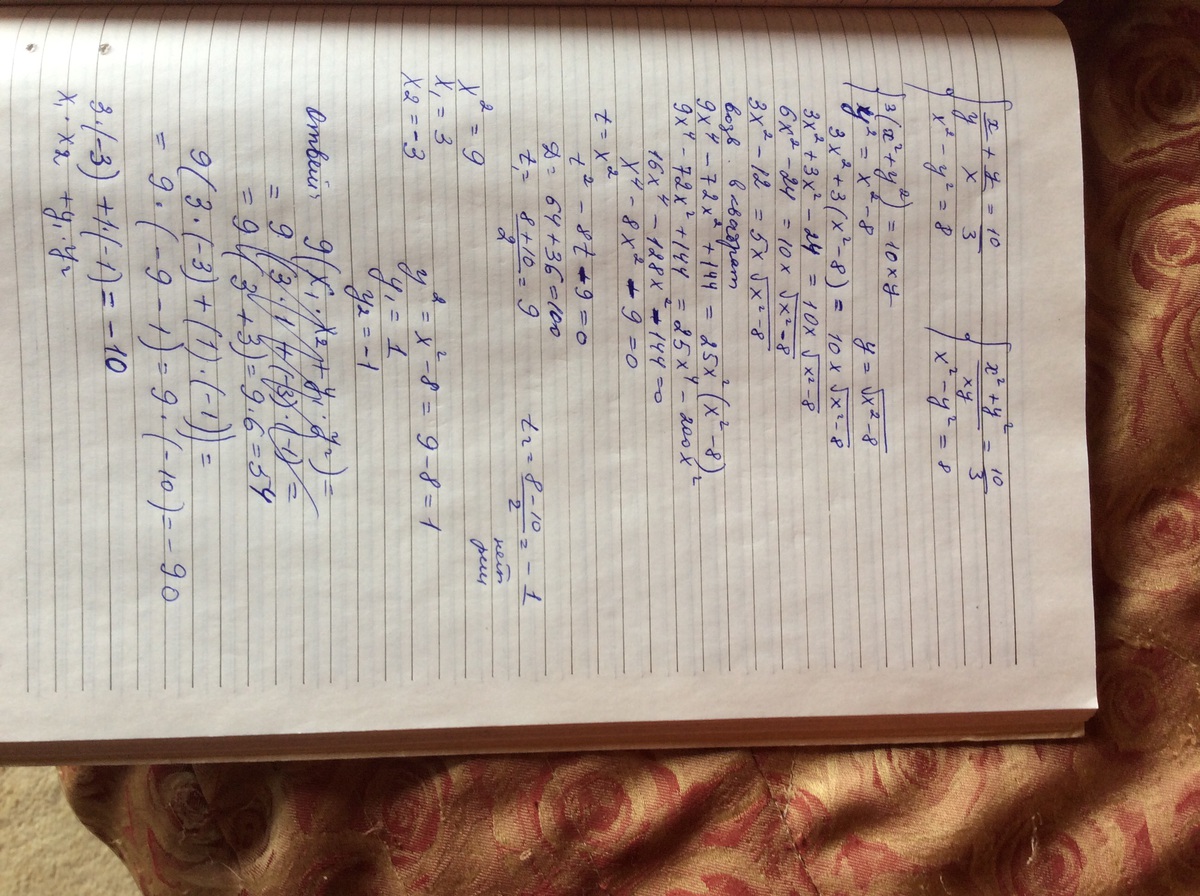 { x/y + y/x = 10/3 { (x²+y²)/(xy) = 10/3
{ x² - y² = 8 { x² - y² = 8
{ 3(x²+y²) = 10xy
{ y² = x² - 8 y = √(x²-8)
3x² + 3(x²-8) = 10x√(x²-8)
3x² + 3x² - 24 = 10x√(x²-8)
6x² - 24 = 10x√(x²-8)
3x² - 12 = 5x√(x²-8)
возв. в квадрат
9x⁴ - 72x² + 144 = 25x²(x²-8)
9x⁴ - 72x² + 144 = 25x⁴ - 200x²
16x⁴ - 128x² - 144 = 0
x⁴ - 8x² - 9 = 0
t = x²
t² - 8t - 9 = 0
D = 64 + 36 = 100
t₁ = (8+10)/2 = 9 t₂ = (8-10)/2 = -1
нет
реш
x² = 9
x₁ = 3 y² = x² - 8 = 9 - 8 = 1
x2 = -3 y₁ = 1
y₂ = -1
Ответ: 9(x₁·x₂ + y₁·y₂) =
= 9(3·1 + (-3)·(-1)) =
= 9(3+3) = 9·6 = 54
9(3·(-3) + (1)·(-1)) =
= 9·(-9-1) = 9·(-10) = -90
3·(-3) + 1·(-1) = -10
x₁·x₂ + y₁·y₂